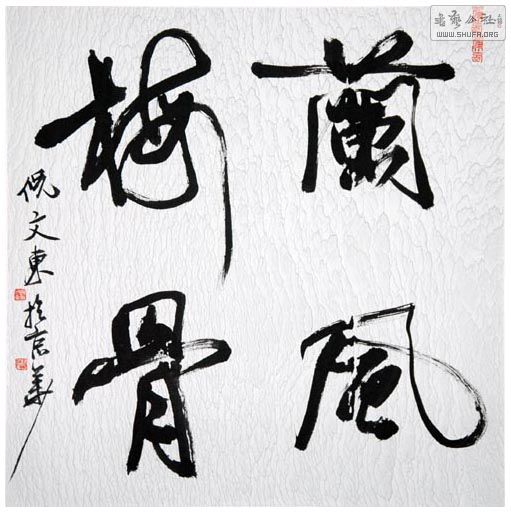 蘭風
梅骨
倪文東於京華
WWW.SHUFA.ORG